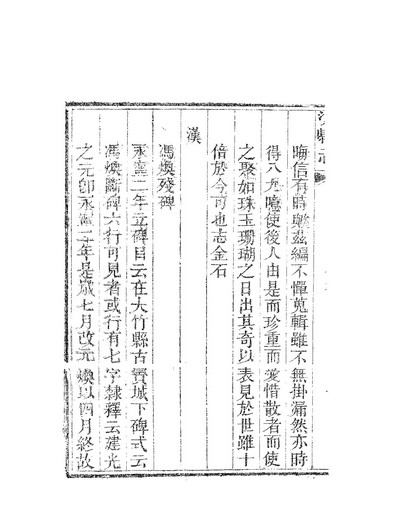 晦信有時歟茲編不憚蒐輯雖不無掛漏然亦時
得八九噫使後人由是而珍重而愛惜散者而使
之聚如珠玉珊瑚之日出其奇以表見於世雖十
倍於今可也志金石
漢
馮煥殘碑
永寧二年立碑目云在大竹縣古賨城下碑式云
馮煥斷碑六行可見者或行有七字隸釋云建光
之元卽永寧二年是歲七月改元煥以四月終故